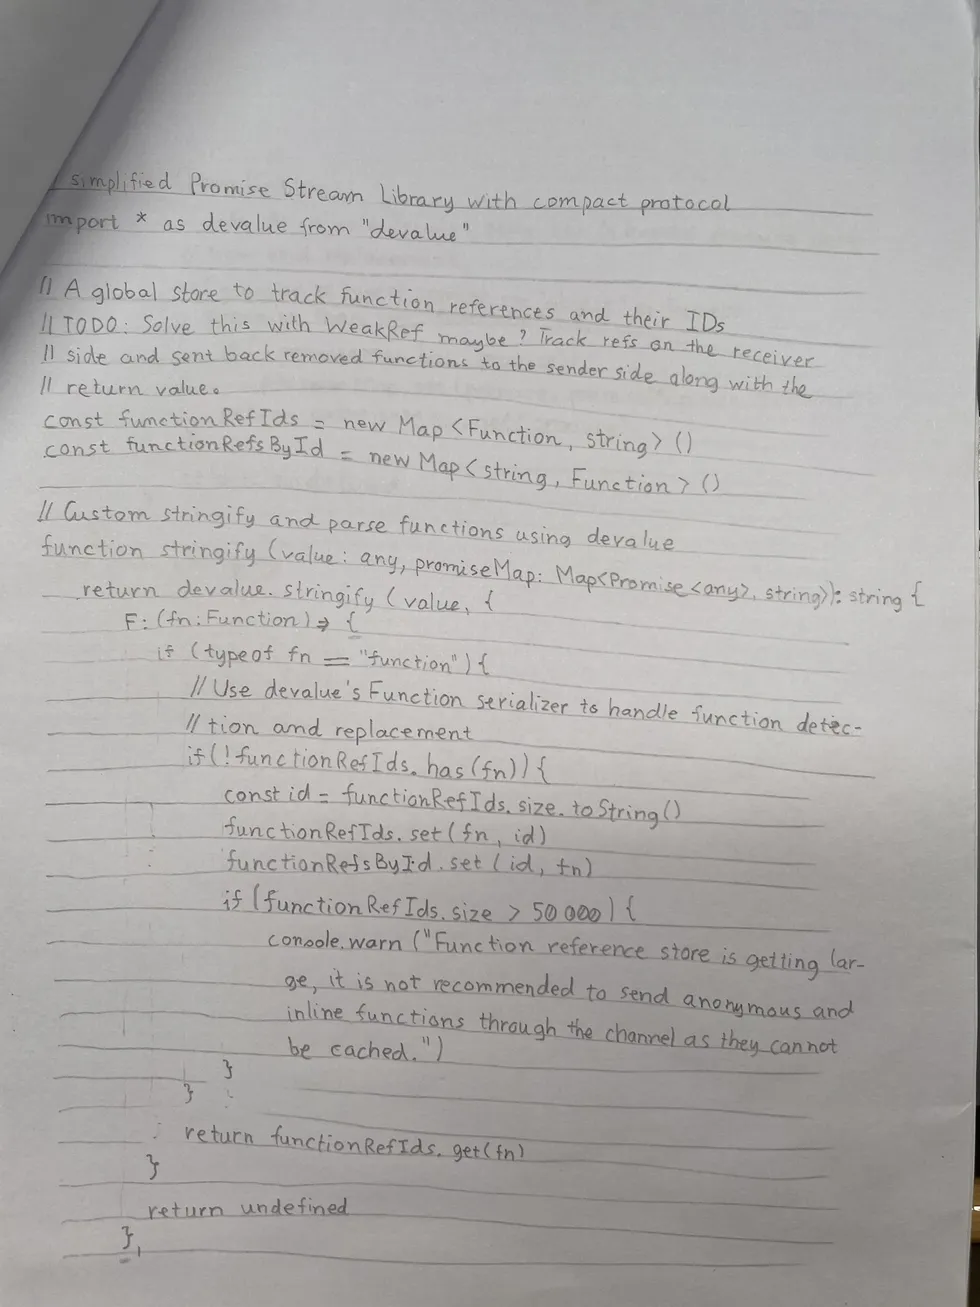 / simplified Promise Stream Library with compact protocol
import * as devalue from "devalue"
// A global store to track function references and their IDs
// TODO: Solve this with WeakRef maybe? Track refs on the receiver
// side and sent back removed functions to the sender side along with the
// return value.
const functionRefIds = new Map<Function, string>()
const functionRefsById = new Map<string, Function>()
// Custom stringify and parse functions using devalue
function stringify(value: any, promiseMap: Map<Promise<any>, string>): string {
return devalue.stringify(value, {
F: (fn: Function) => {
if (typeof fn == "function") {
// Use devalue's Function serializer to handle function detec-
// tion and replacement
if(!functionRefIds.has(fn)) {
const id = functionRefIds.size.toString()
functionRefIds.set(fn, id)
functionRefsById.set(id, fn)
if (functionRefIds.size > 50000) {
console.warn("Function reference store is getting lar-
ge, it is not recommended to send anonymous and
inline functions through the channel as they cannot
be cached.")
}
}
return functionRefIds.get(fn)
}
return undefined
},